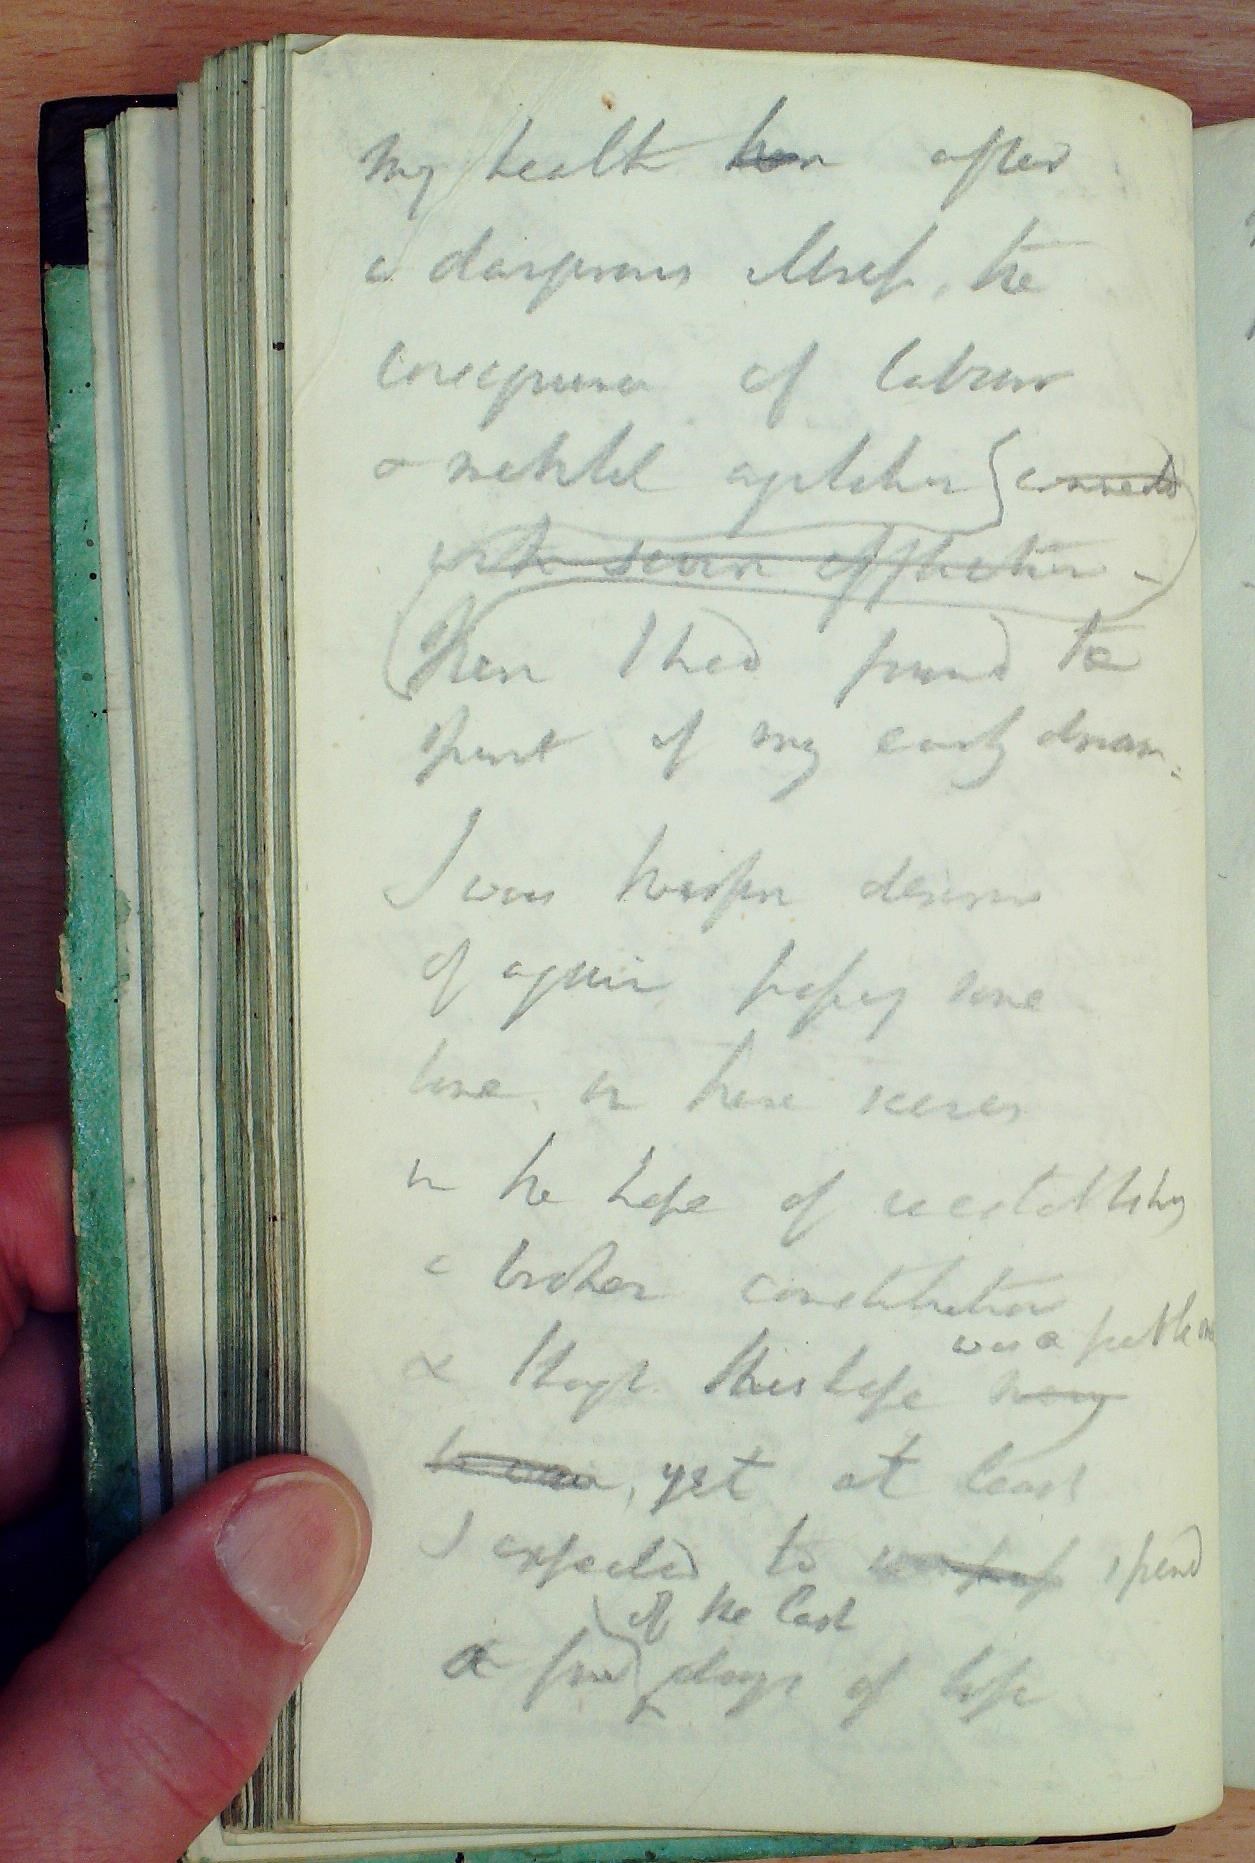 my health after
a dangerous illness, the
consequence of labour
& mental agitation connected
with severe affliction -
Here I had found the
spirit of my early dream.
I was therefore desirous
of again passing some
time in these scenes
in the hope of reestablishing
a broken constitution
was a feeble one
& though this hope may
be vain, yet at least
I expected to spend
of the last
a few days of life